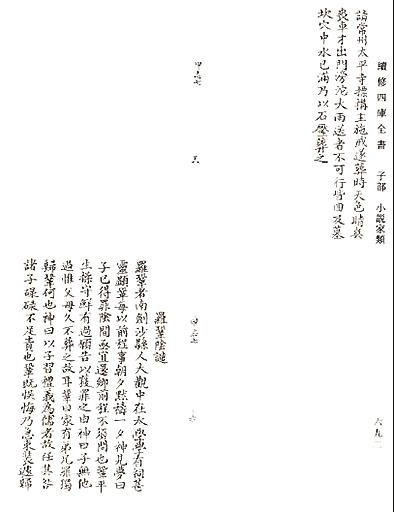 續修四庫全書 子部 小說家類
六九二
請常州太平寺摽構主施戒遂葬時天色晴爽
喪車才出門滂沱大雨送者不可行皆回及墓
坎穴中水已滿乃以石壓葬之
羅鞏陰譴
羅鞏者南劍沙縣人大觀中在太學學有祠甚
靈顯鞏每以前程事朝夕默禱一夕神見夢曰
子已得罪陰間亟宜還鄉前程不須問也鞏平
生操守鮮有過願告以獲罪之由神曰子無他
過惟父母久不葬之故耳鞏曰家有弟兄罪獨
歸鞏何也神曰以子習禮義為儒者故任其咎
諸子碌碌不足責也鞏既悮悔乃急束裝遽歸